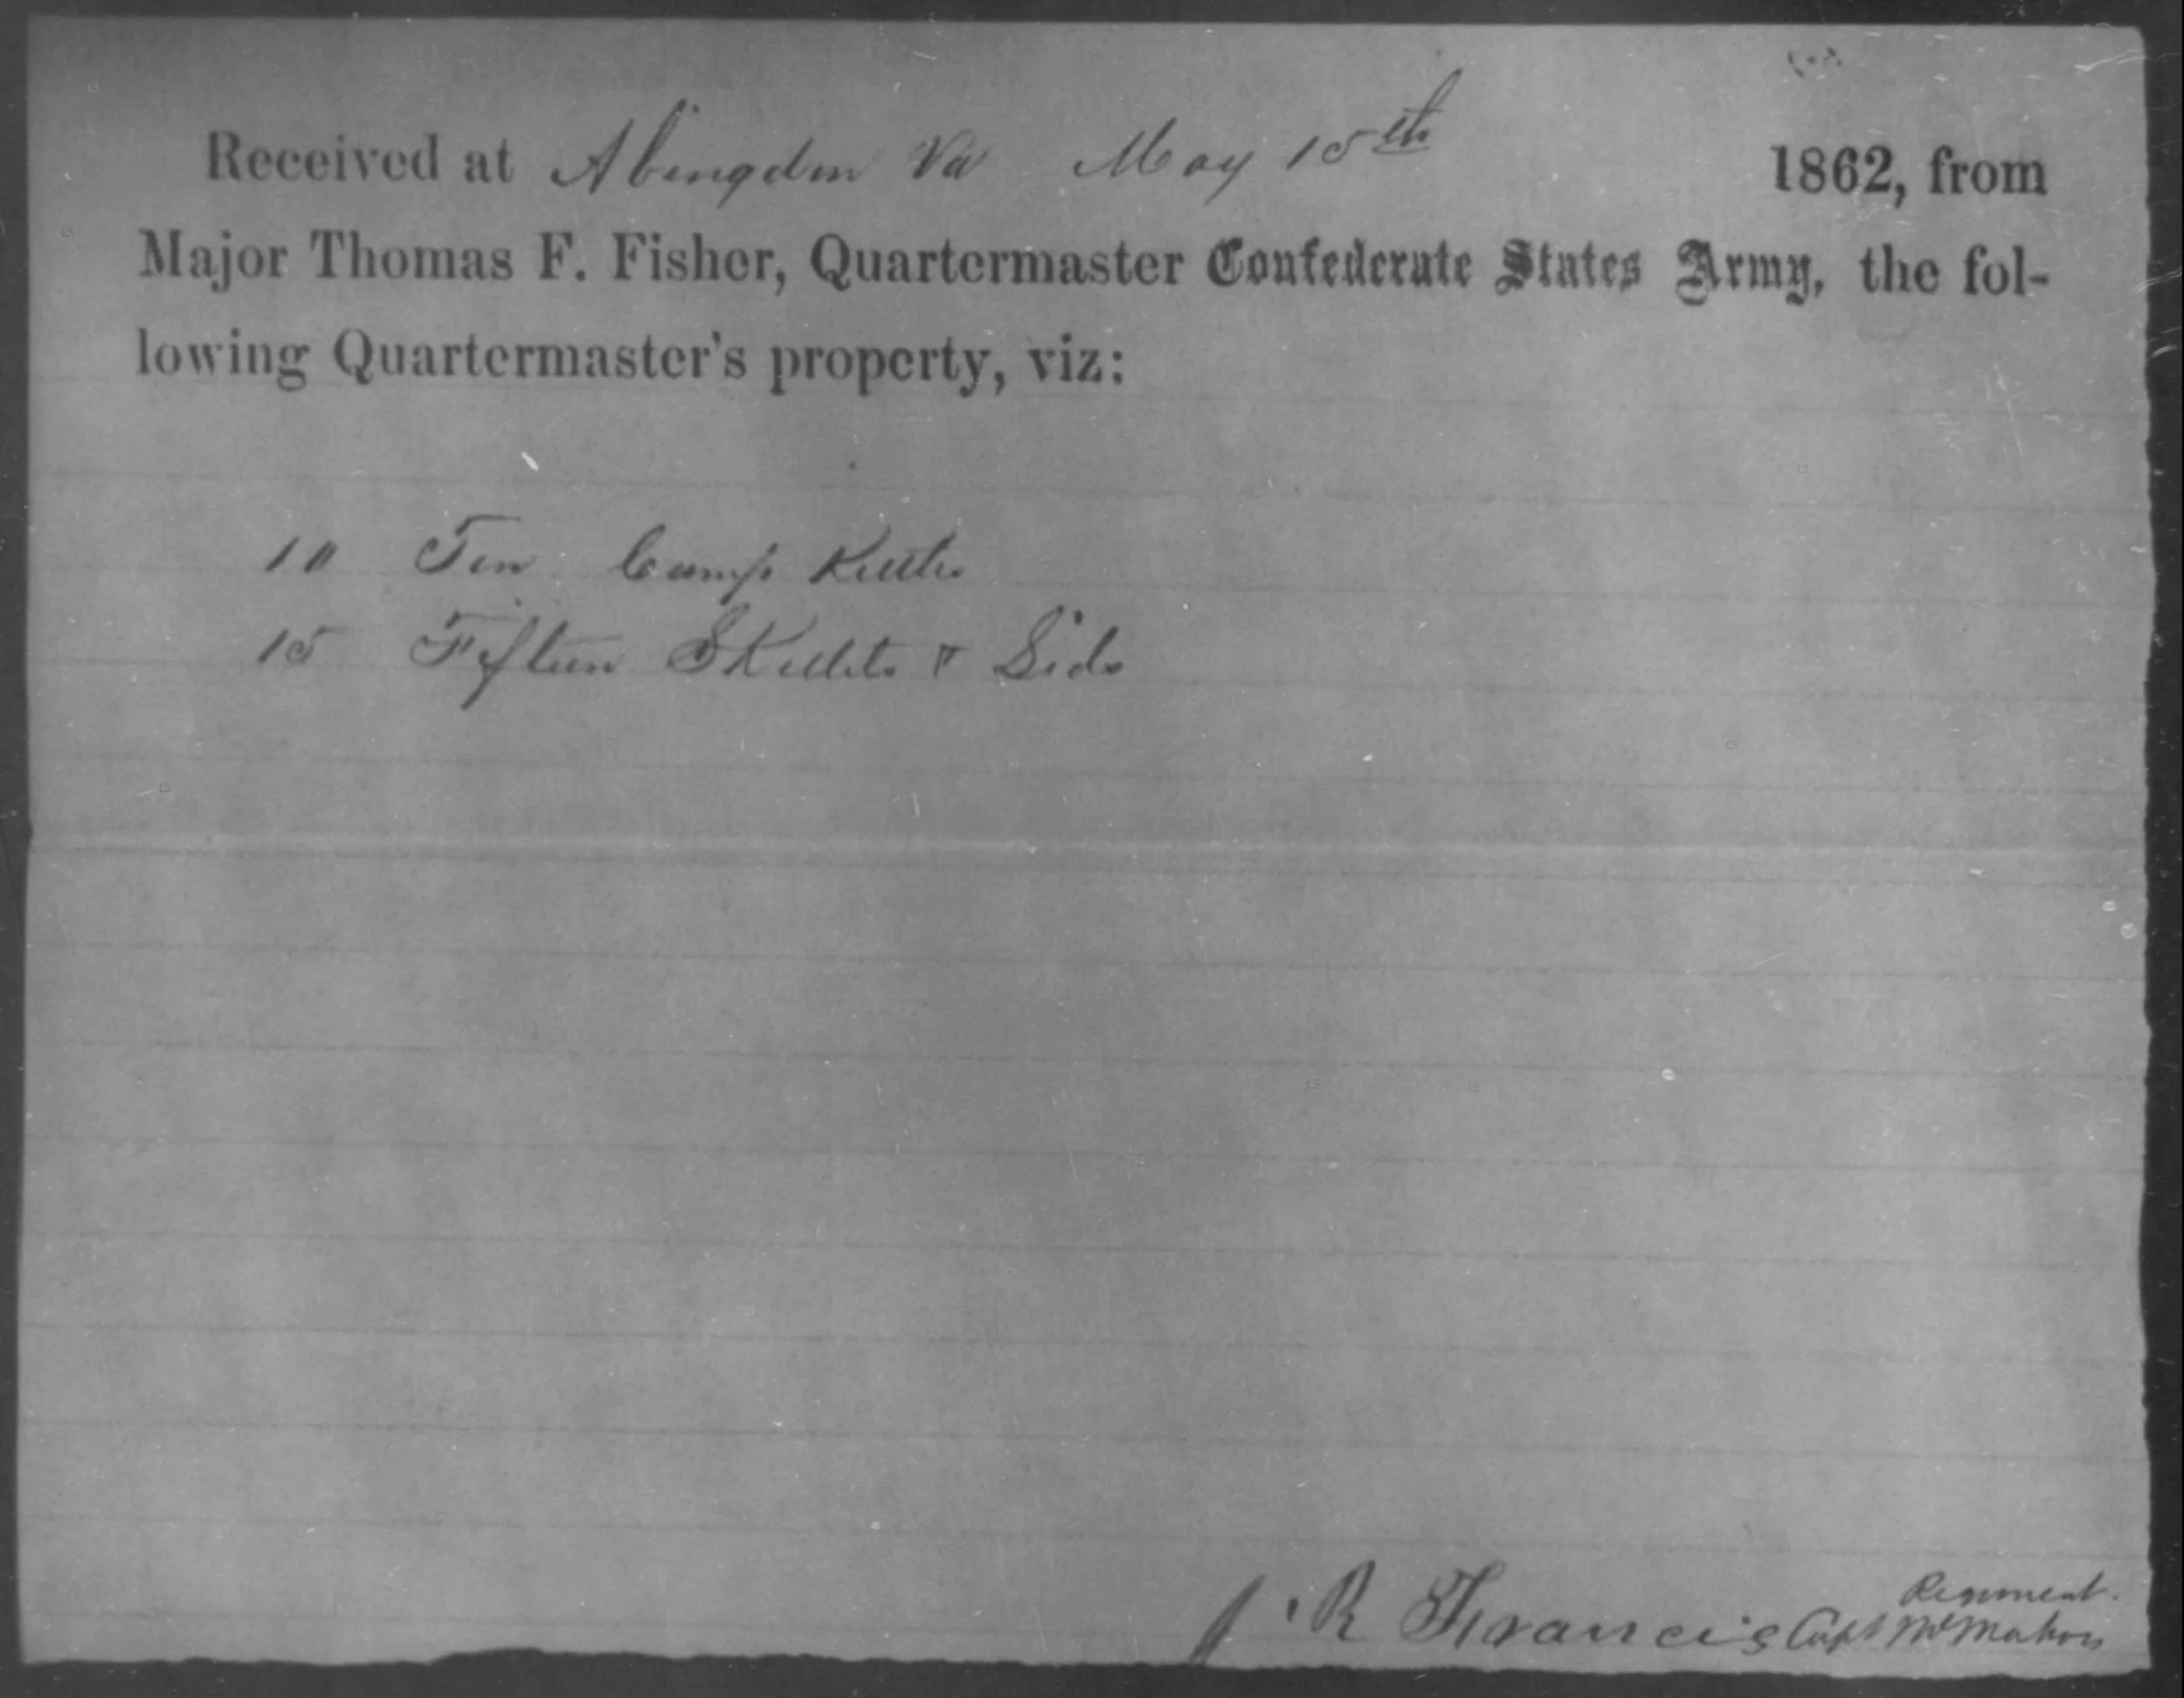 Received at Abingdon Va May 15th 1862, from
Major Thomas F. Fisher, Quartermaster Confederate States Army, the fol-
lowing Quartermaster's property, viz:
10 Ten Camp Kettles
15 Fifteen Skillets & Lids
J. R Francis Capt McMahon
Regiment.